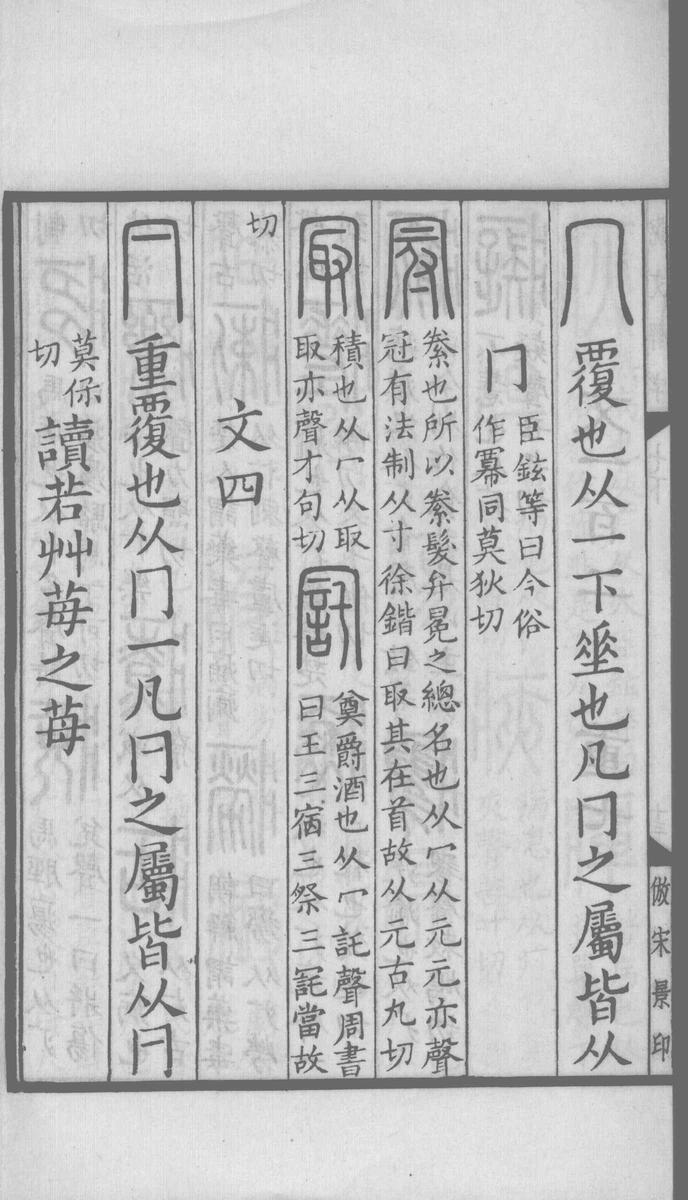 倣宋景印
冖覆也从一下垂也凡冂之屬皆从
冂臣鉉等曰今俗
作冪同莫狄切
冠絭也所以絭髮弁冕之緫名也从冖从元元亦聲
冠有法制从寸徐鍇曰取其在首故从元古丸切
冣積也从冖从取
取亦聲才句切
𠖊奠爵酒也从冖託聲周書
曰王三宿三祭三𠖊當故
切
文四
𠔼重覆也从冂一凡𠔼之屬皆从𠔼
莫保
切
讀若艸苺之苺